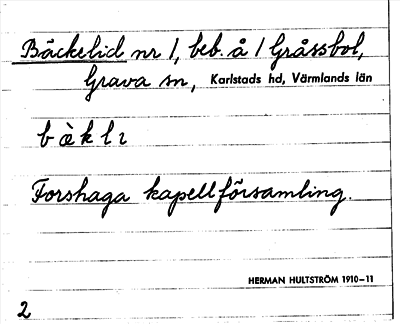 Bäckelid nr 1, beb. å 1 Gråssbol,
Grava sn, Karlstads hd, Värmlands län
b æ̀ k l ı
Forshaga kapellförsamling.
HERMAN HULTSTRÖM 1910–11
2